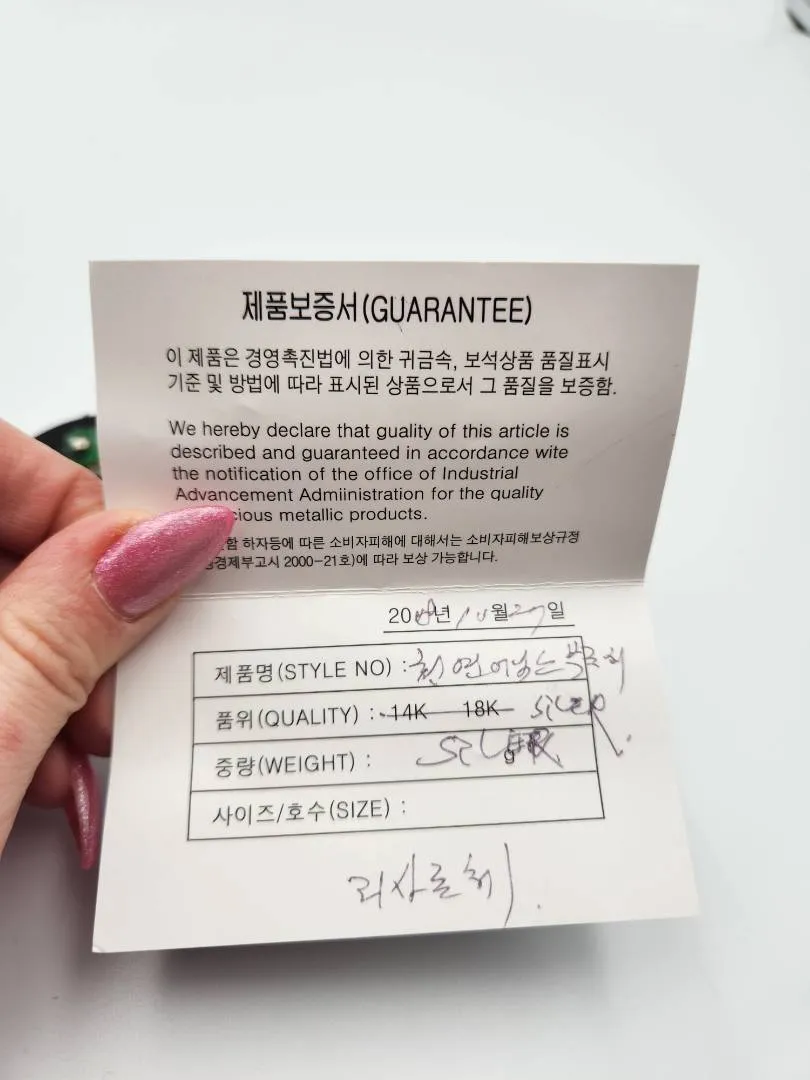 제품보증서(GUARANTEE)
이 제품은 경영촉진법에 의한 귀금속, 보석상품 품질표시
기준 및 방법에 따라 표시된 상품으로서 그 품질을 보증함.
We hereby declare that guality of this article is
described and guaranteed in accordance wite
the notification of the office of Industrial
Advancement Admiinistration for the quality
cious metallic products.
함 하자등에 따른 소비자피해에 대해서는 소비자피해보상규정
경제부고시 2000-21호)에 따라 보상 가능합니다.
20 년 월 일
제품명(STYLE NO) : 천연
품위(QUALITY) : 14K 18K SILVER
중량(WEIGHT) : SILVER g
사이즈/호수(SIZE) :